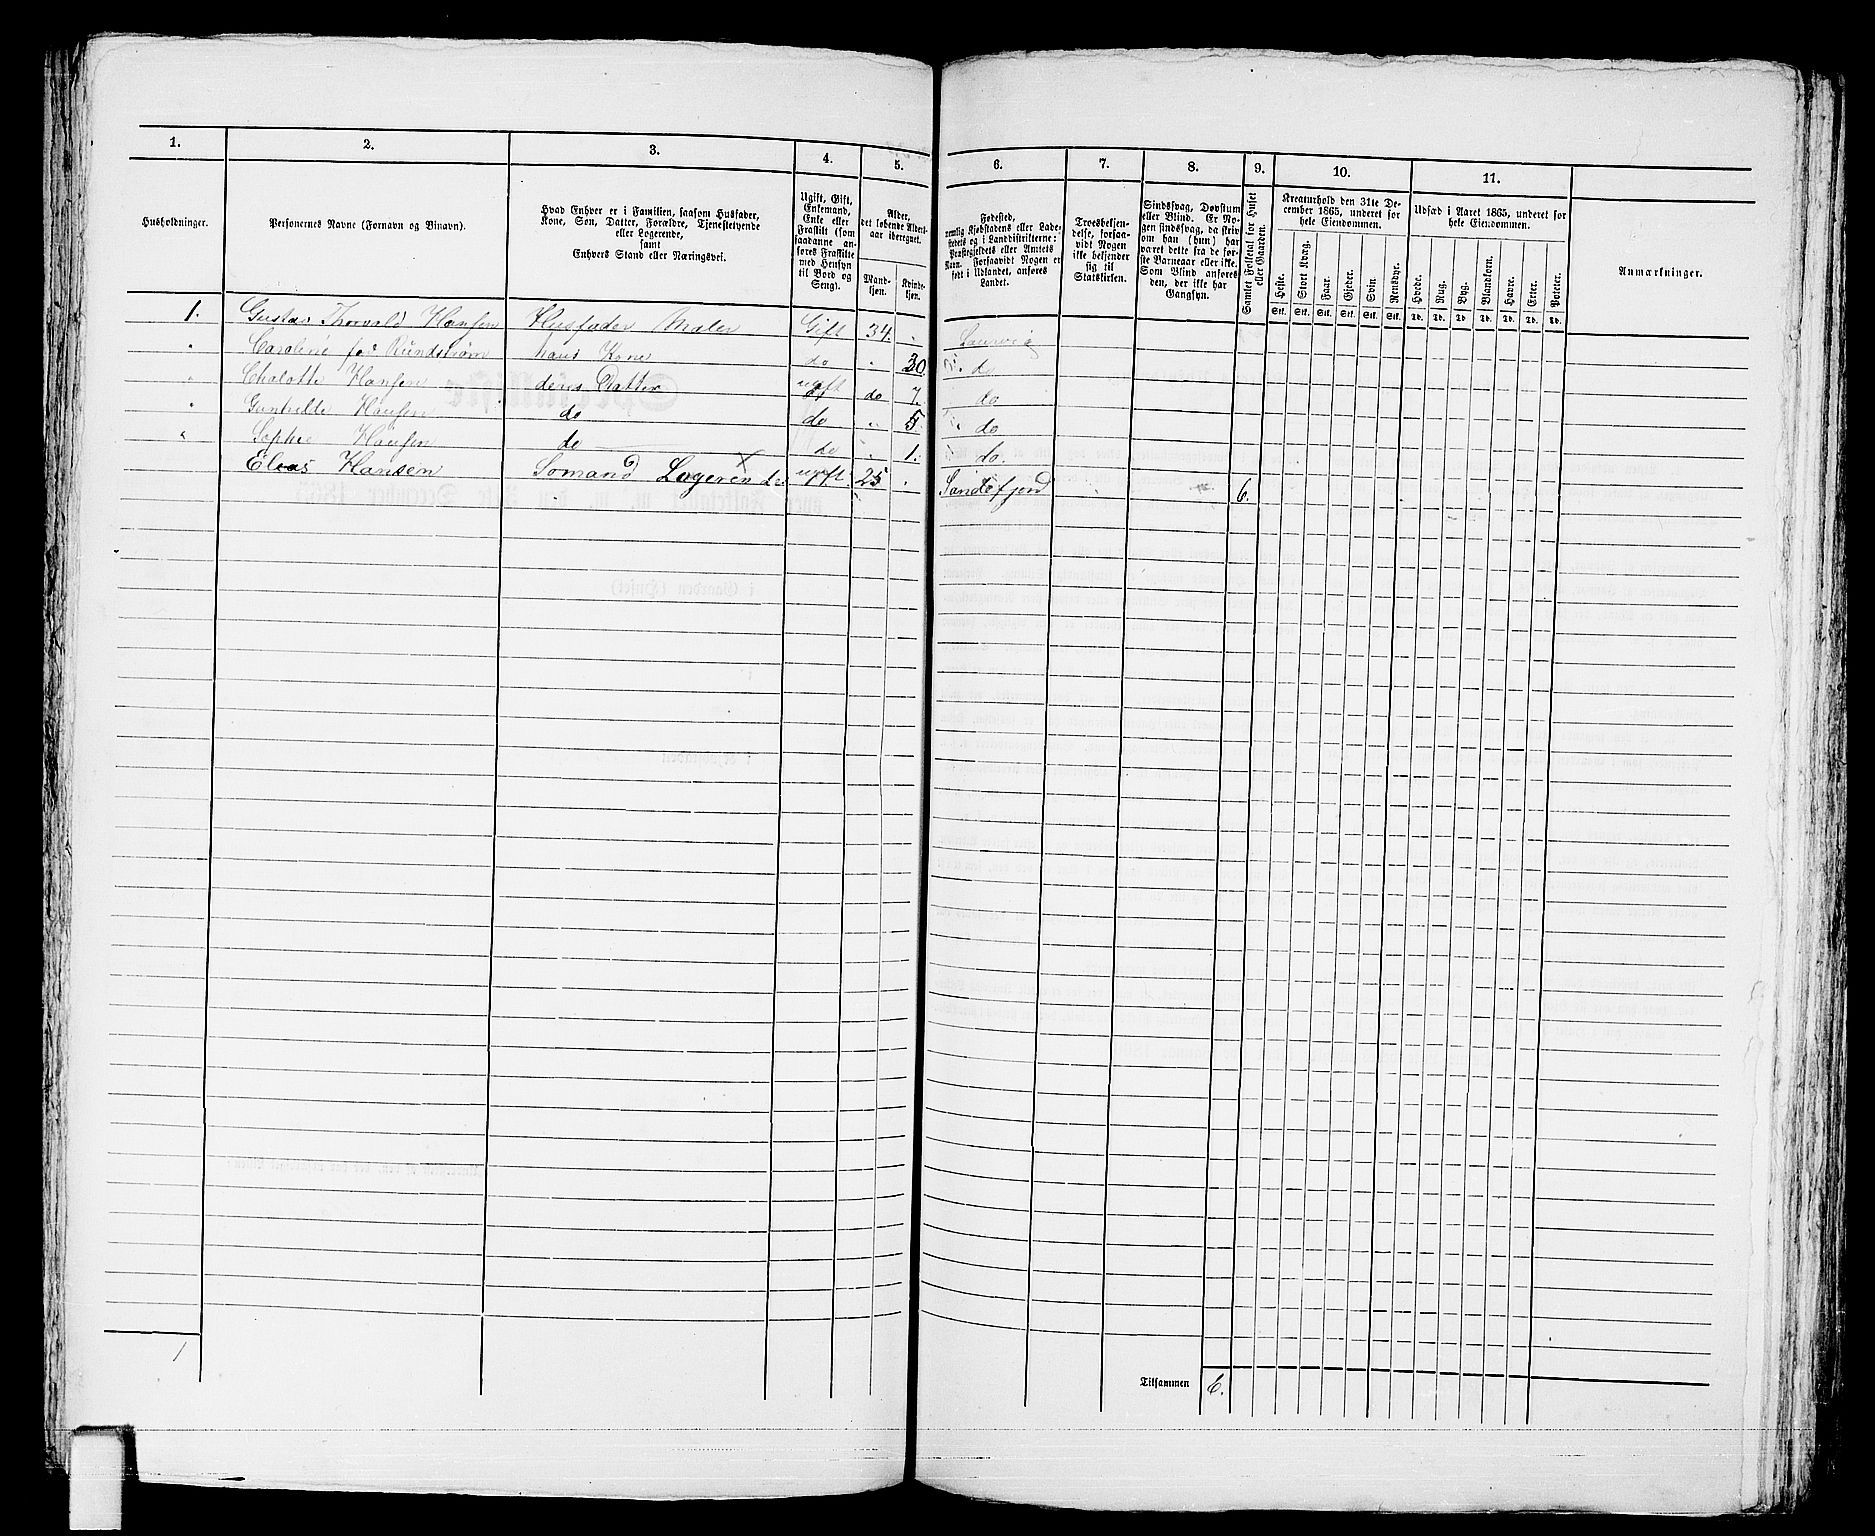 1. 2. 3. 4. 5. 6. 7. 8. 9. 10. 11.
Husholdninger.
Personernes Navne (Fornavn og Binavn).
Hvad Enhver er i Familien, saasom Husfader,
Kone, Søn, Datter, Forældre, Tjenestetyende
eller Logerende,
samt
Enhvers Stand eller Næringsvei.
Ugift, Gift,
Enkemand,
Enke eller
Fraskilt (som
saadanne an-
føres Fraskilte
med Hensyn
til Bord og
Seng).
Alder,
det løbende Alders-
aar iberegnet.
Mand-
kjøn.
Kvinde-
kjøn.
Fødested,
nemlig Kjøbstadens eller Lade-
stedets og i Landdistrikterne:
Præstegjeldets eller Amtets
Navn. Forsaavidt Nogen er
født i Udlandet, anføres
Landet.
Troesbekjen-
delse, forsaa-
vidt Nogen
ikke bekjender
sig til
Statskirken.
Sindssvag, Døvstum
eller Blind. Er No-
gen sindssvag, da skriv
om han (hun) har
været dette fra de før-
ste Barneaar eller ikke.
Som Blind anføres
den, der ikke har
Gangsyn.
Samlet Folketal for Huset
eller Gaarden.
Kreaturhold den 31te De-
cember 1865, underet for
hele Eiendommen.
Heste. Stort Kvæg. Faar. Gjeder. Svin. Rensdyr.
Stk. Stk. Stk. Stk. Stk. Stk.
Udsæd i Aaret 1865, underet for
hele Eiendommen.
Hvede. Rug. Byg. Blandkorn. Havre. Erter. Poteter.
Td. Td. Td. Td. Td. Td. Td.
Anmærkninger.
1. Gustav Thorvald Hansen Husfader Maler Gift 34. Laurvig
" Caroline fød Rundstrøm hans Kone do " 30 do
" Chalotte Hansen deres Datter ugift do 7. do
" Hansen do do " 5 do
" Sophie Hansen do do " 1. do
Elias Hansen Sømand Logerende ugift 25 Sandefjord 6.
1
Tilsammen 6.